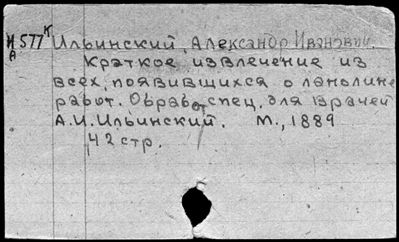 И 577 к Ильинский, Александр Иванович.
А
Краткое извлечение из
всех, появившихся о ланолине
работ. Обработ. спец. для врачей
А.И. Ильинский. М., 1889
42 стр.